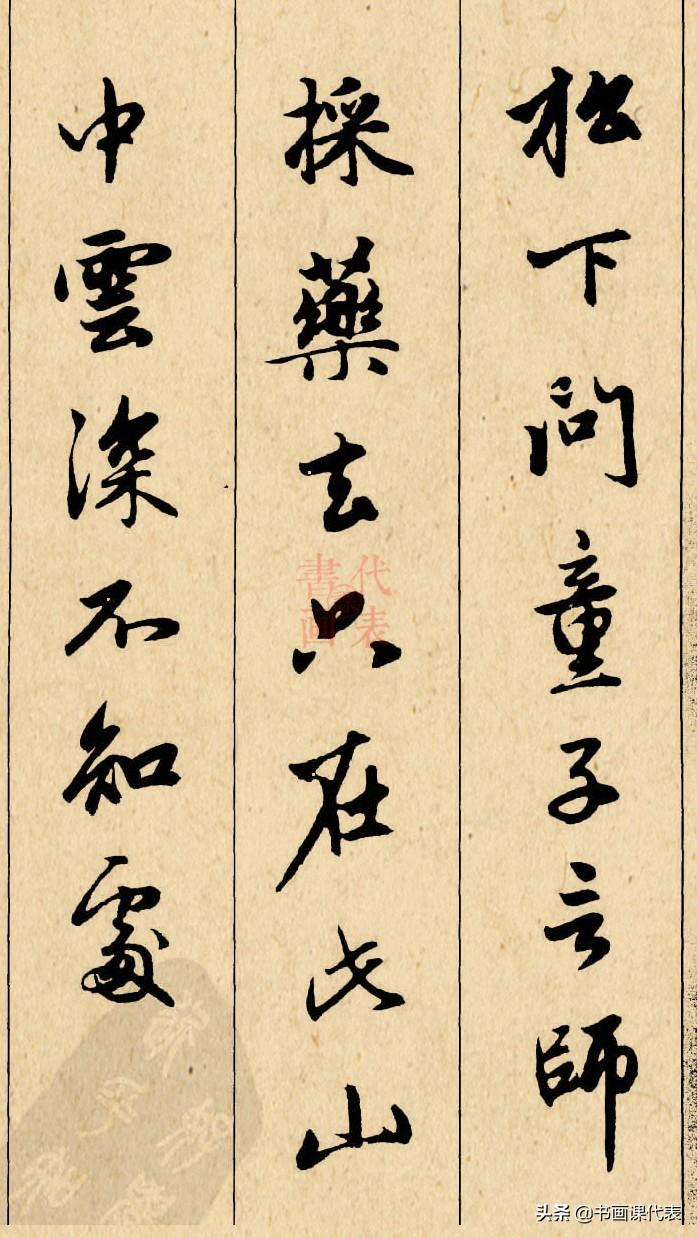 松下問童子言師
採藥去只在此山
中雲深不知處
書画
代表
头条 @书画课代表